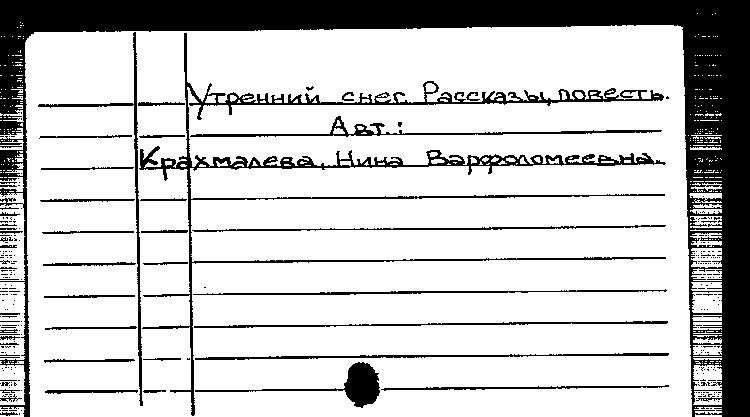 Утренний снег. Рассказы, повесть.
Авт.:
Крахмалева, Нина Варфоломеевна.